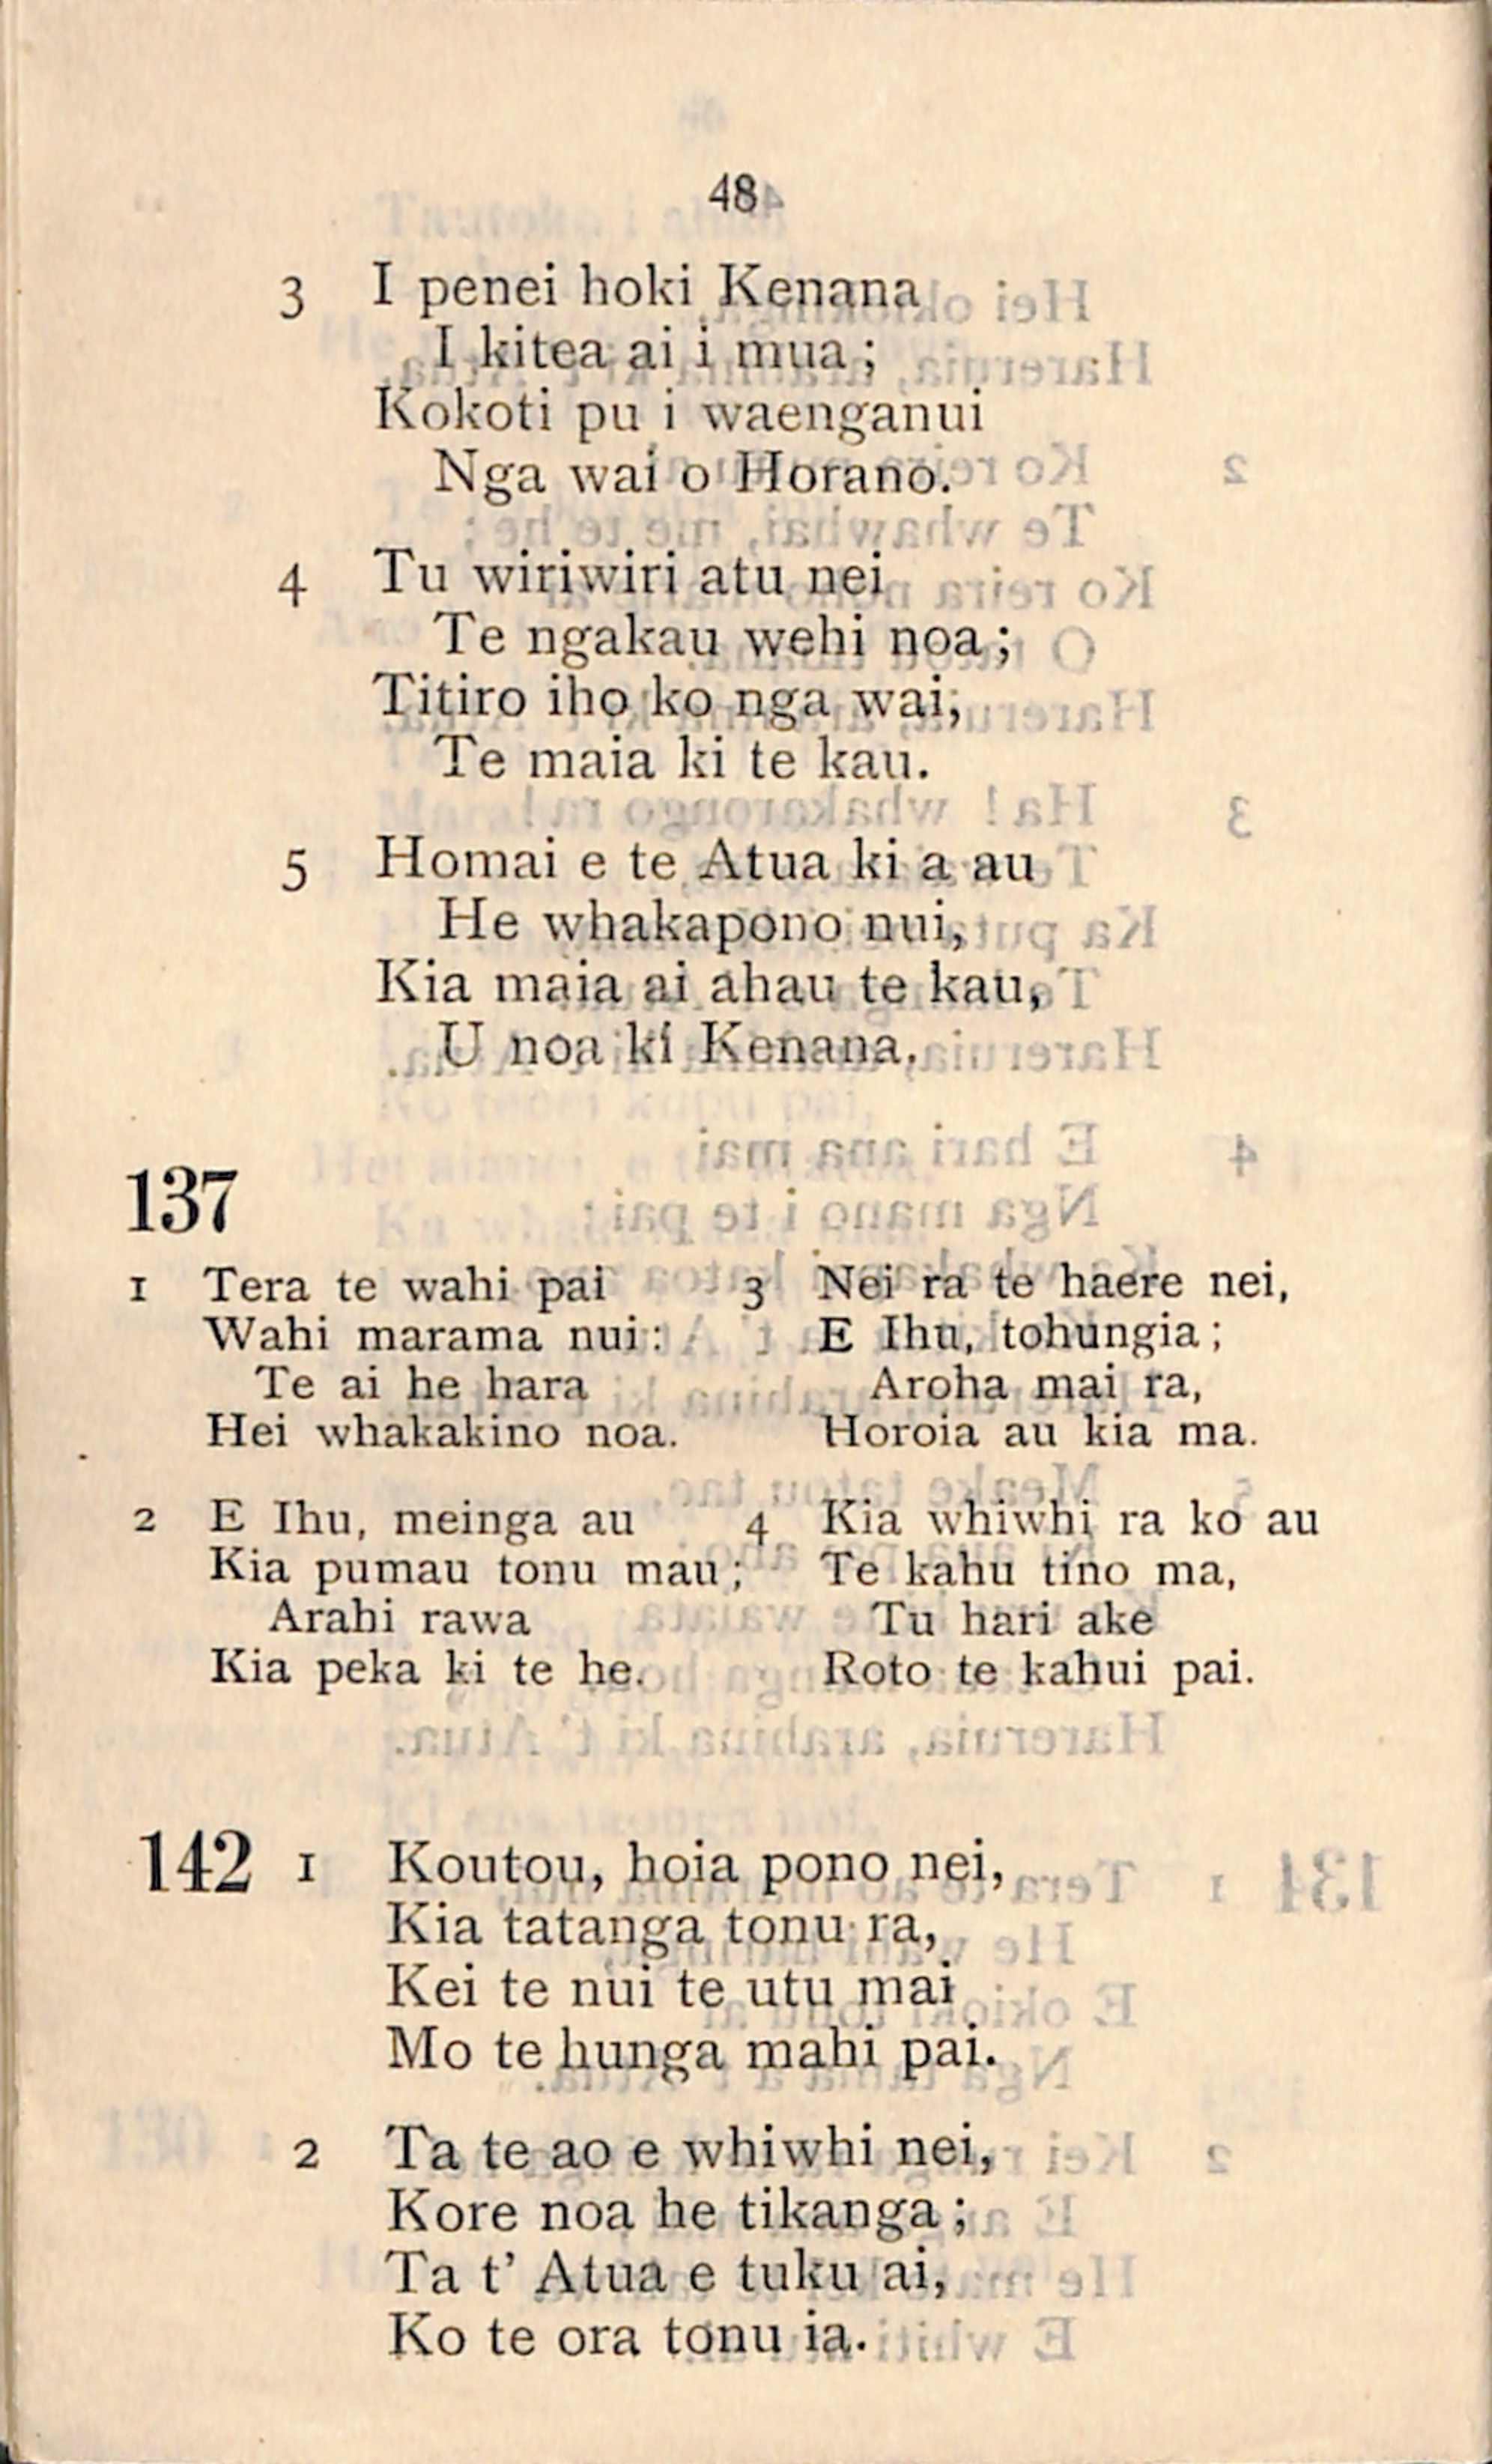 48
3 I penei hoki Kenana
I kitea ai i mua;
Kokoti pu i waenganui
Nga wai o Horano.
4 Tu wiriwiri atu nei
Te ngakau wehi noa;
Titiro iho ko nga wai,
Te maia ki te kau.
5 Homai e te Atua ki a au
He whakapono nui,
Kia maia ai ahau te kau,
U noa ki Kenana.
137
1 Tera te wahi pai
Wahi marama nui:
Te ai he hara
Hei whakakino noa.
2 E Ihu, meinga au
Kia pumau tonu mau;
Arahi rawa
Kia peka ki te he.
3 Nei ra te haere nei,
E Ihu, tohungia;
Aroha mai ra,
Horoia au kia ma.
4 Kia whiwhi ra ko au
Te kahu tino ma,
Tu hari ake
Roto te kahui pai.
142 1 Koutou, hoia pono nei,
Kia tatanga tonu ra,
Kei te nui te utu mai
Mo te hunga mahi pai.
2 Ta te ao e whiwhi nei,
Kore noa he tikanga;
Ta t' Atua e tuku ai,
Ko te ora tonu ia.